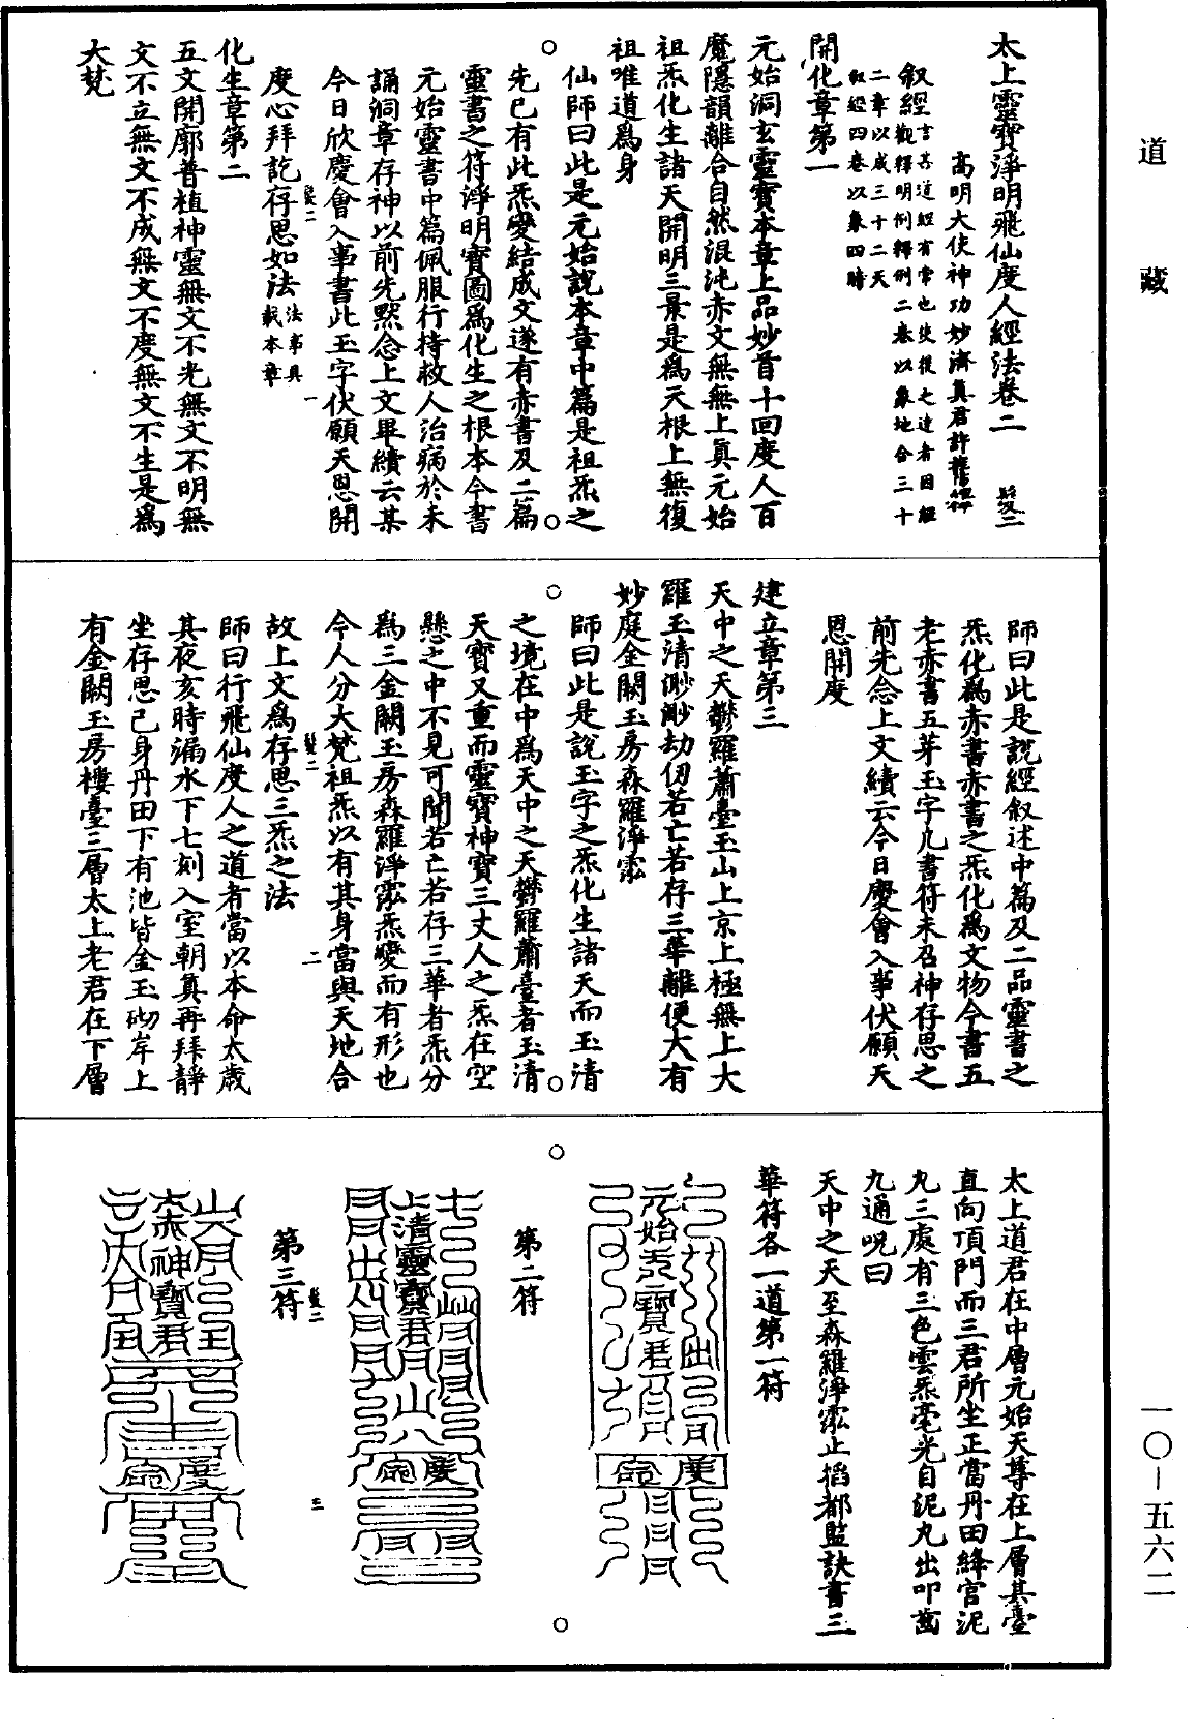 道藏
太上靈寶淨明飛仙度人經法卷二 髮二
高明大使神功妙濟真君許旌陽釋
叙經言吾道經有常也使後之達者因經
觀釋明例釋例二卷以象地合三十
二章以成三十二天
叙經四卷以象四時
開化章第一
元始洞玄靈寶本章上品妙首十回度人百
魔隱韻離合自然混沌赤文無無上真元始
祖炁化生諸天開明三景是為天根上無復
祖唯道為身
仙師曰此是元始說本章中篇是祖炁之
先已有此炁變結成文遂有赤書及二篇
靈書之符淨明寶圖為化生之根本今書
元始靈書中篇佩服行持救人治病於未
誦洞章存神以前先默念上文畢續云某
今日欣慶會入事書此玉字伏願天恩開
度心拜訖存思如法法事具載本章
髮二 一
化生章第二
五文開廓普植神靈無文不光無文不明無
文不立無文不成無文不度無文不生是為
大梵
師曰此是說經叙述中篇及二品靈書之
炁化為赤書赤書之炁化為文物今書五
老赤書五芽玉字凡書符未召神存思之
前先念上文續云今日慶會入事伏願天
恩開度
建立章第三
天中之天鬱羅蕭臺玉山上京上極無上大
羅玉清渺渺劫仞若亡若存三華離便大有
妙庭金闕玉房森羅淨泓
師曰此是說玉字之炁化生諸天而玉清
之境在中為天中之天鬱羅蕭臺者玉清
天寶又重而靈寶神寶三丈人之炁在空
懸之中不見可聞若亡若存三華者炁分
為三金闕玉房森羅淨泓炁變而有形也
今人分大梵祖炁以有其身當與天地合
髮二 二
故上文為存思三炁之法
師曰行飛仙度人之道者當以本命太歲
其夜亥時漏水下七刻入室朝真再拜靜
坐存思己身丹田下有池皆金玉砌岸上
有金闕玉房樓臺三層太上老君在下層
太上道君在中層元始天尊在上層其臺
直向頂門而三君所坐正當丹田絳宮泥
丸三處有三色雲炁毫光自泥丸出叩齒
九通呪曰
天中之天至森羅淨泓止掐都監訣書三
華符各一道第一符
元始天寶君
度命
第二符
上清靈寶君
度命
髮二 三
第三符
太赤神寶君
度命
一〇-五六二